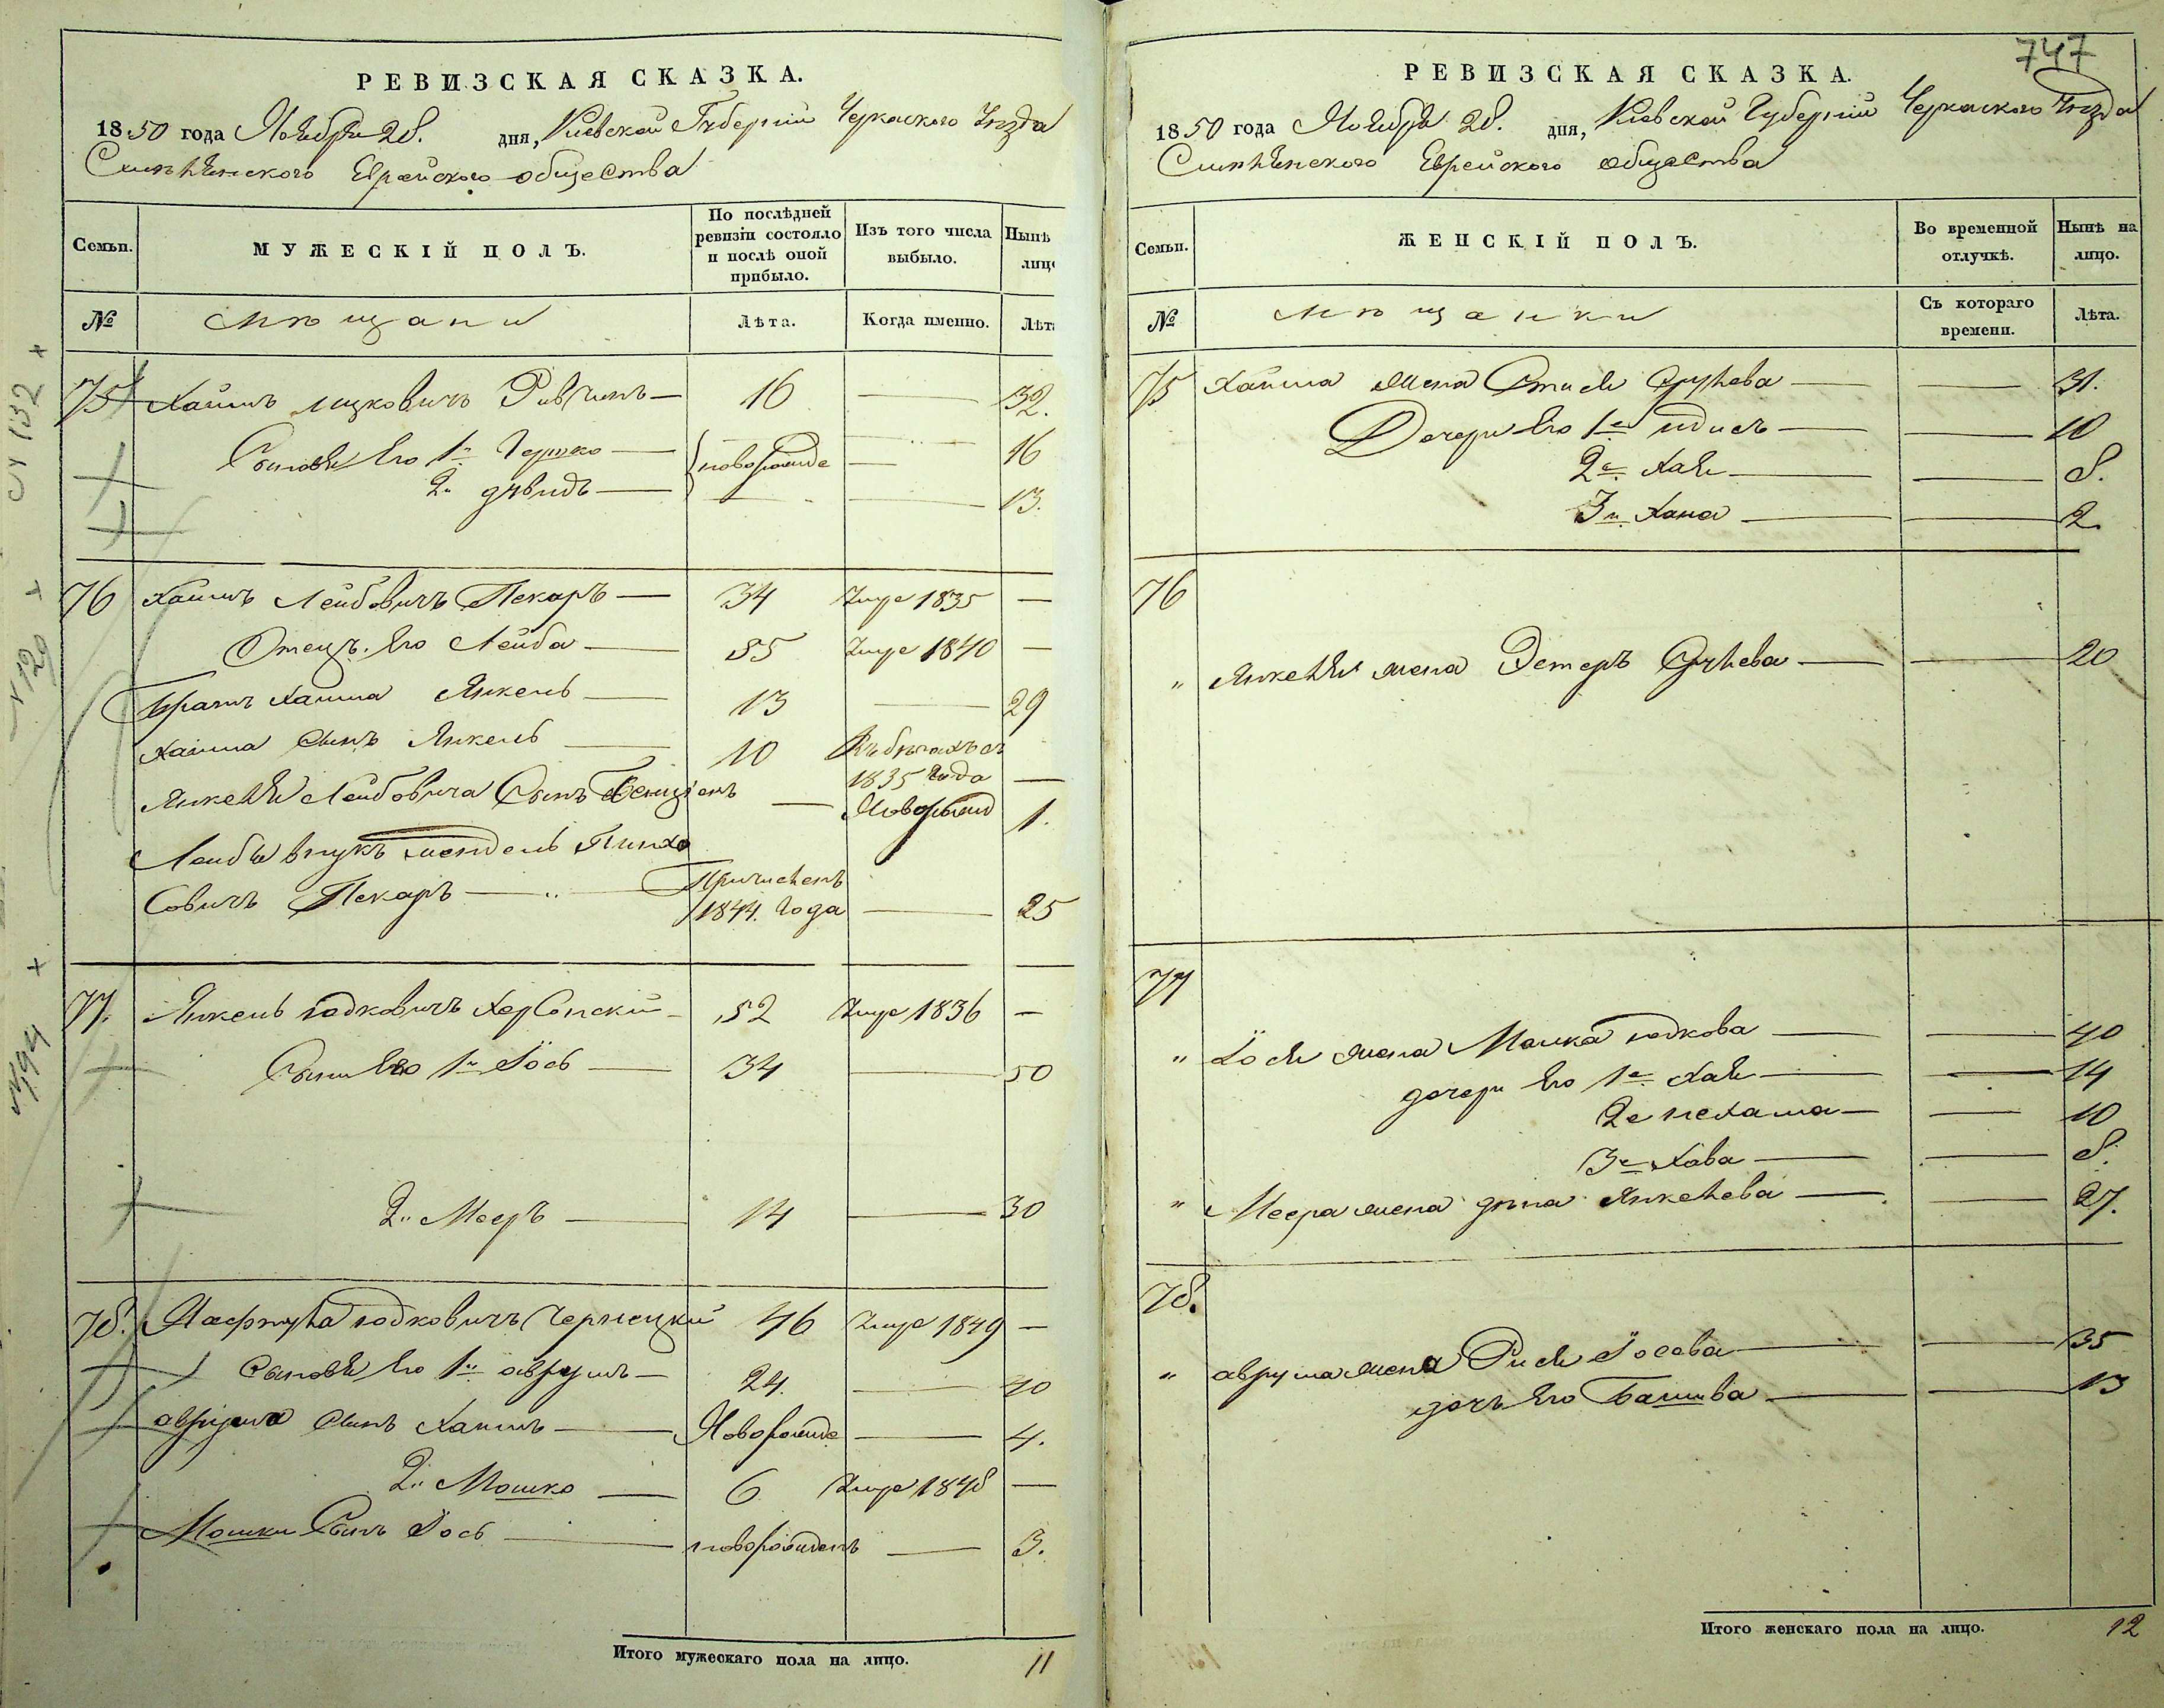 РЕВИЗСКАЯ СКАЗКА.
1850 года Ноября 28. дня, Киевской Губернии Черкаского Уезда
Смелянского Еврейского общества
Семьи. МУЖЕСКІЙ ПОЛЪ. По послѣдней ревизіи состояло и послѣ оной прибыло. Изъ того числа выбыло. Нынѣ лицо
№ мещани Лѣта. Когда именно. Лѣта
75 Хаимъ Ицковичъ 16 — 32.
Сыновья Его 1й Гершко — новорожде — 16
2й давидъ — — 13.
76 Хаимъ Лейбовичъ Пекаръ — 34 Умре 1835 —
Отецъ Его Лейба — 55 Умре 1840 —
Братъ Хаима Янкель — 13 — 29
Хаима Сынъ Янкель — 10 въ бегахъ съ
1835 года —
Янкеля Лейбовича Сынъ Бенціенъ — Новорожд 1.
Лейбы внукъ мендель Пинхо
совичъ Пекаръ — Причисленъ
1844. Года — 25
77. Янкель Юдковичъ Херсонский — 52 Умре 1836 —
Сыни Его 1й Іось — 34 — 50
2й Мееръ — 14 — 30
78. Нафтула Юдковичъ Чернецкий 46 Умре 1849 —
Сыновья Его 1й аврумъ — 24. — 40
аврума Сынъ Хаимъ — Новорожде — 4.
2й Мошко — 6 Умре 1848 —
Мошки Сынъ Іось — новорожденъ — 3.
Итого мужескаго пола на лицо. 11
747
РЕВИЗСКАЯ СКАЗКА.
1850 года Ноября 28. дня, Киевской Губернии Черкаского Уезда
Смелянского Еврейского общества
Семьи. ЖЕНСКІЙ ПОЛЪ. Во временной отлучкѣ. Нынѣ на лицо.
№ мещанки Съ котораго времени. Лѣта.
75 Хаима жена Срулева — — 31.
Дочери Его 1я идись — — 10
2я Хая — — 8.
3я Хана — — 2.
76
" Янкеля жена Эстеръ Срулева — — 20
77
" Іося жена Малка Юдкова — — 40
дочери Его 1я Хая — — 14
2я нехама — — 10
3я Хава — — 8.
" Меера жена дина Янкелева — — 27.
78.
" аврума жена Рися Іосева — — 35
дочь Его Башива — — 13
Итого женскаго пола на лицо. 12